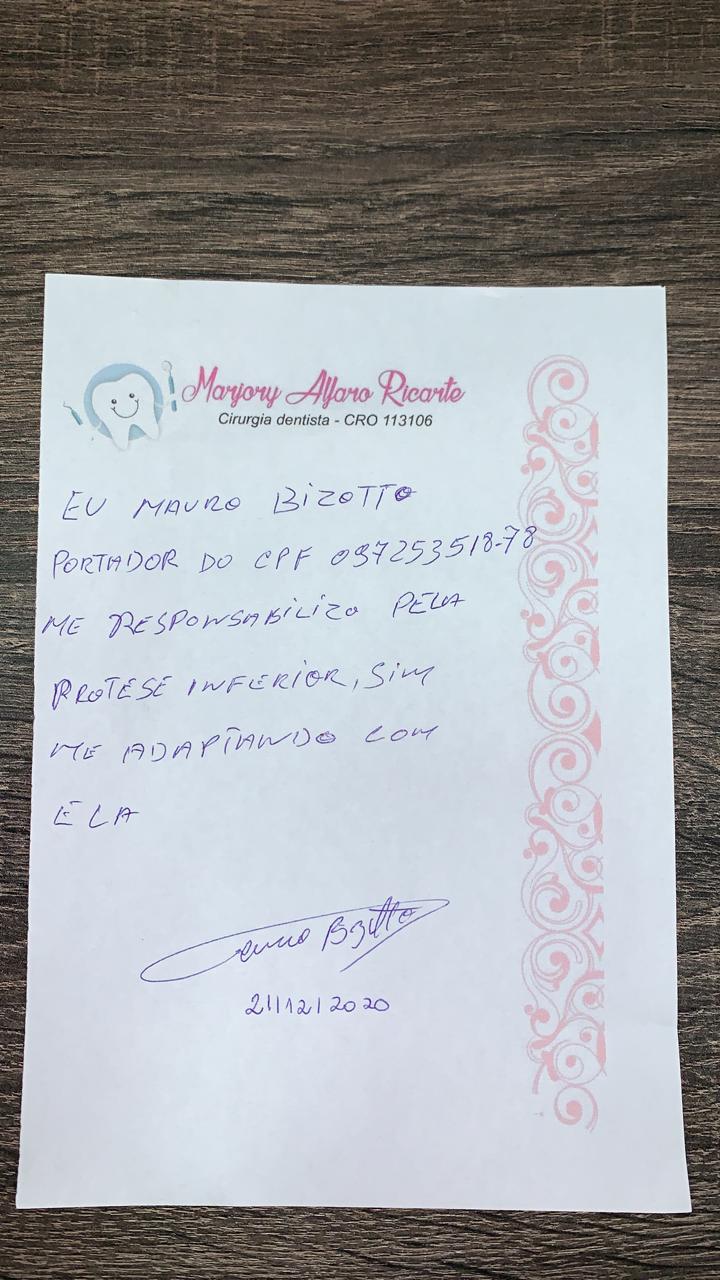 Marjory Alfaro Ricarte
Cirurgia dentista - CRO 113106
EU MAURO BIZOTTO
PORTADOR DO CPF 097253518-78
ME RESPONSABILIZO PELA
PROTESE INFERIOR, SIM
ME ADAPTANDO COM
ELA
21/12/2020